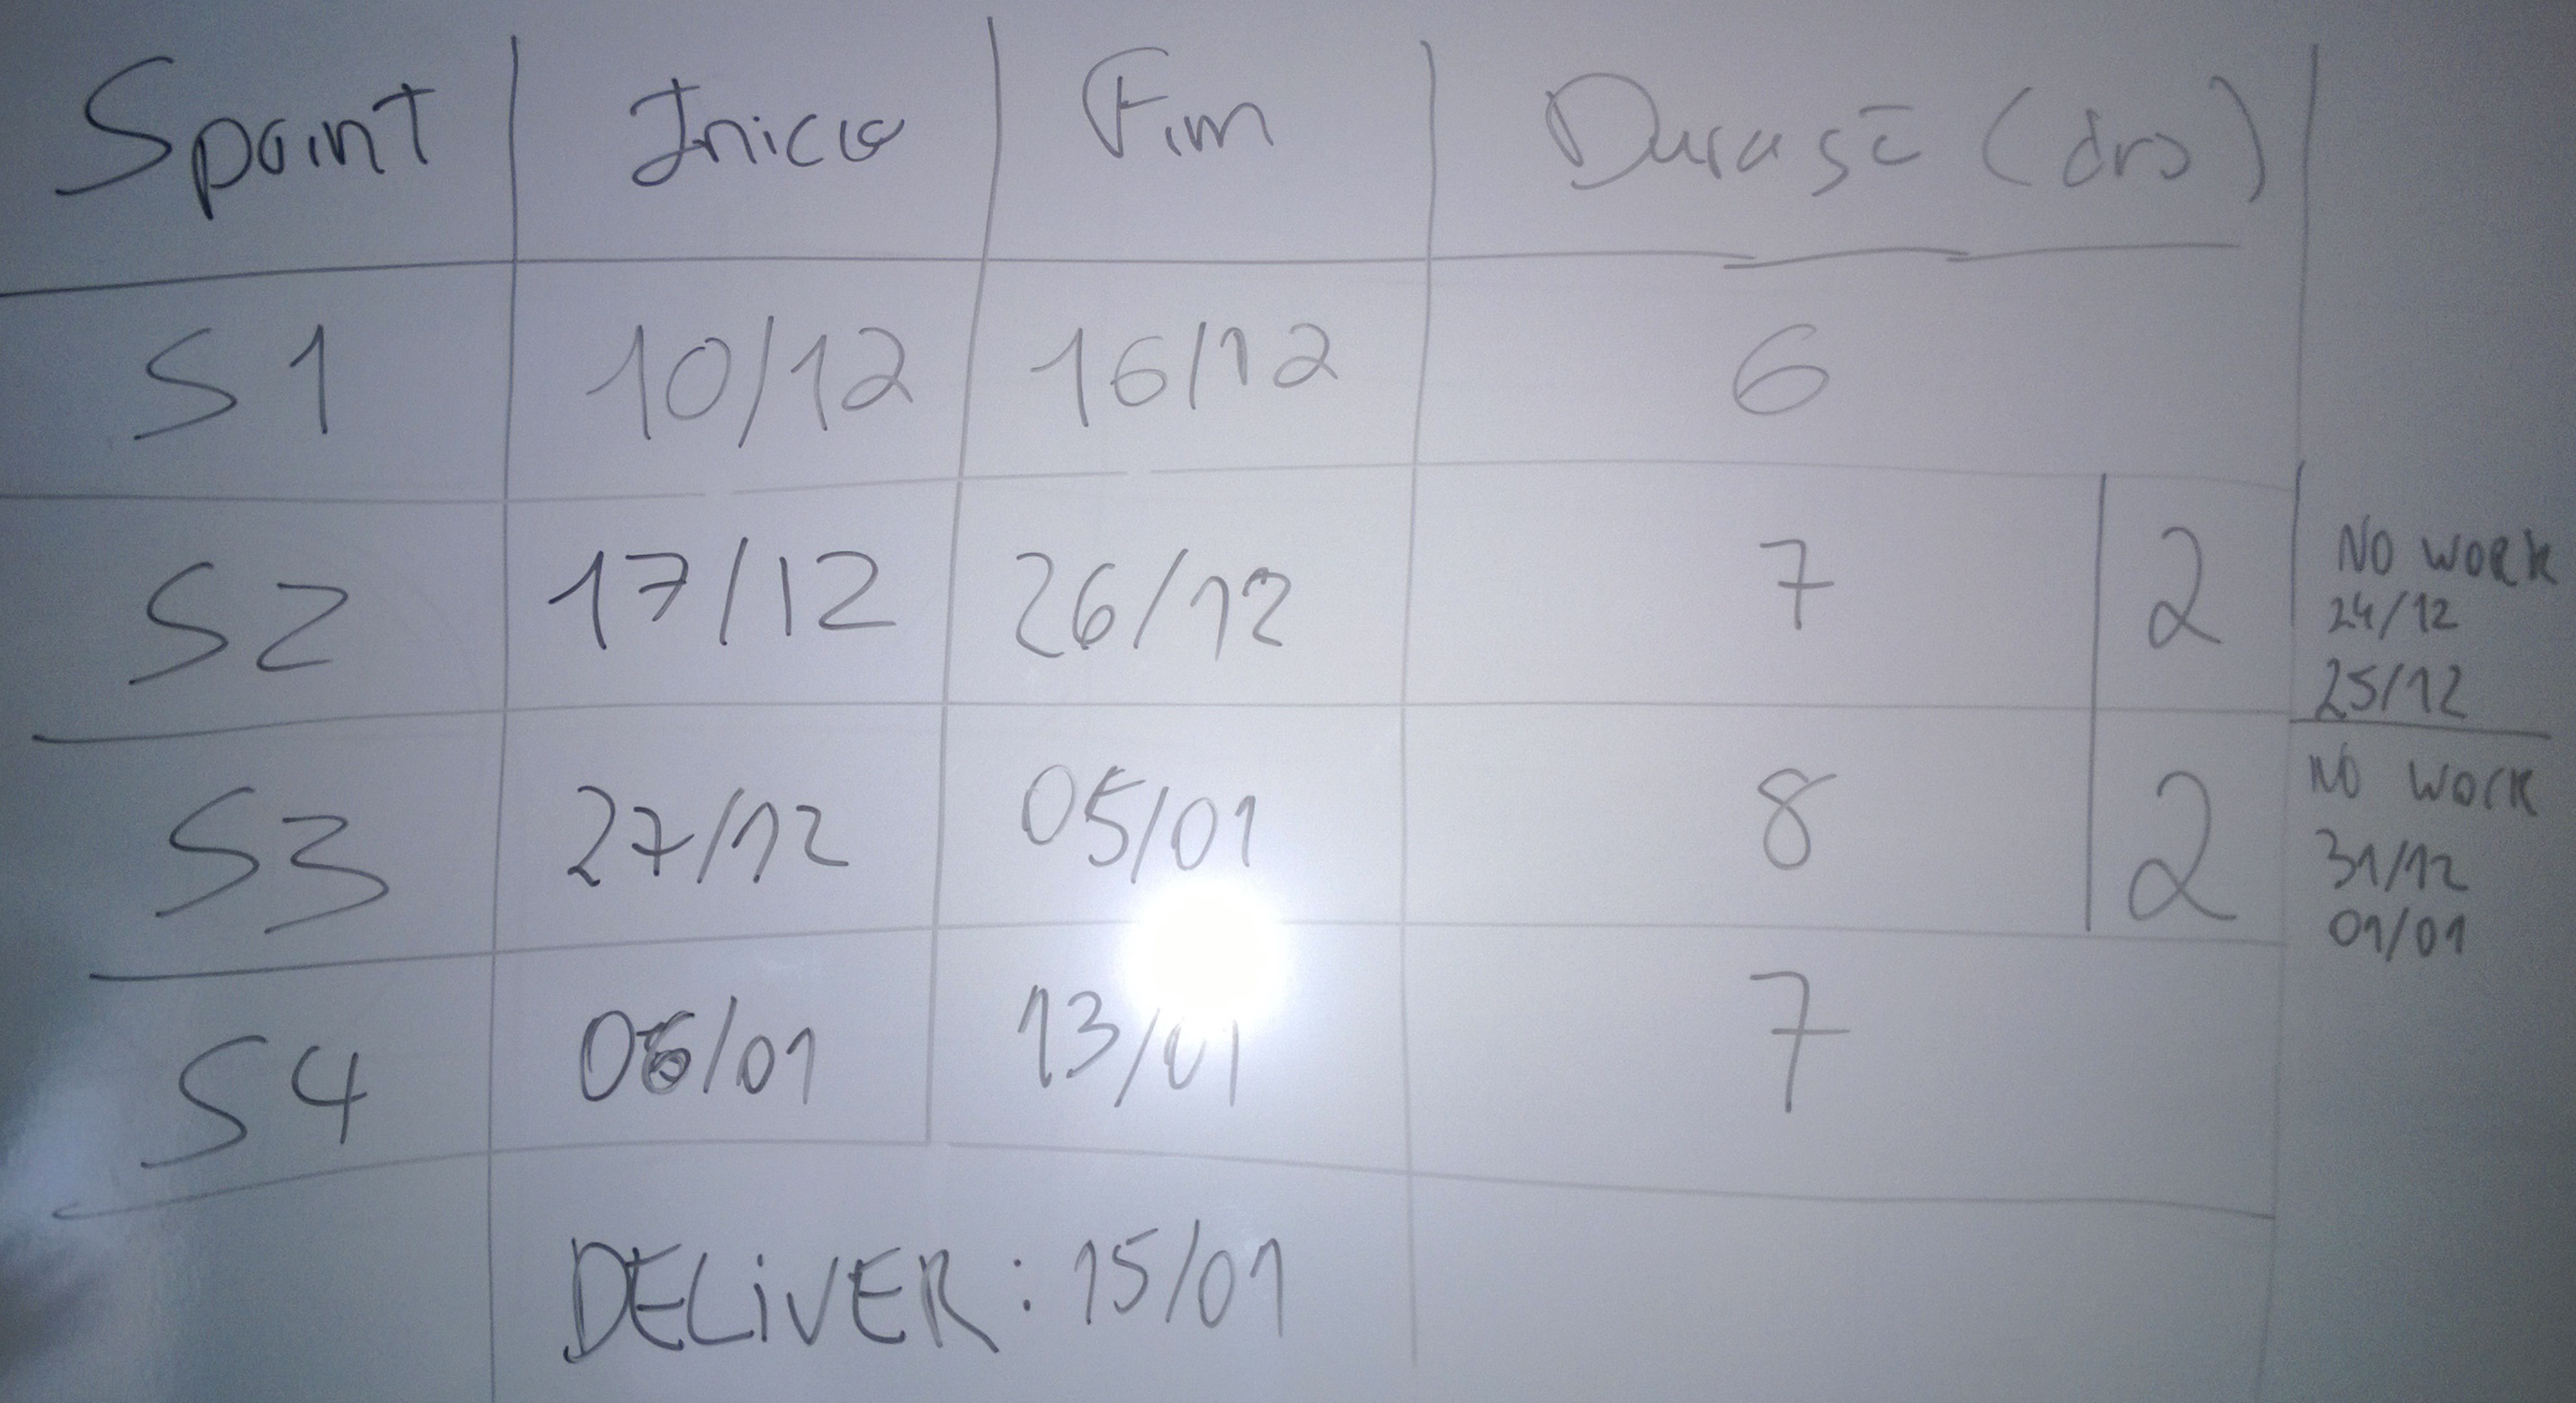 Sprint Inicio Fim Duração (dias)
S1 10/12 16/12 6
S2 17/12 26/12 7 2 NO WORK
24/12
25/12
S3 27/12 05/01 8 2 NO WORK
31/12
01/01
S4 06/01 13/01 7
DELiVER: 15/01